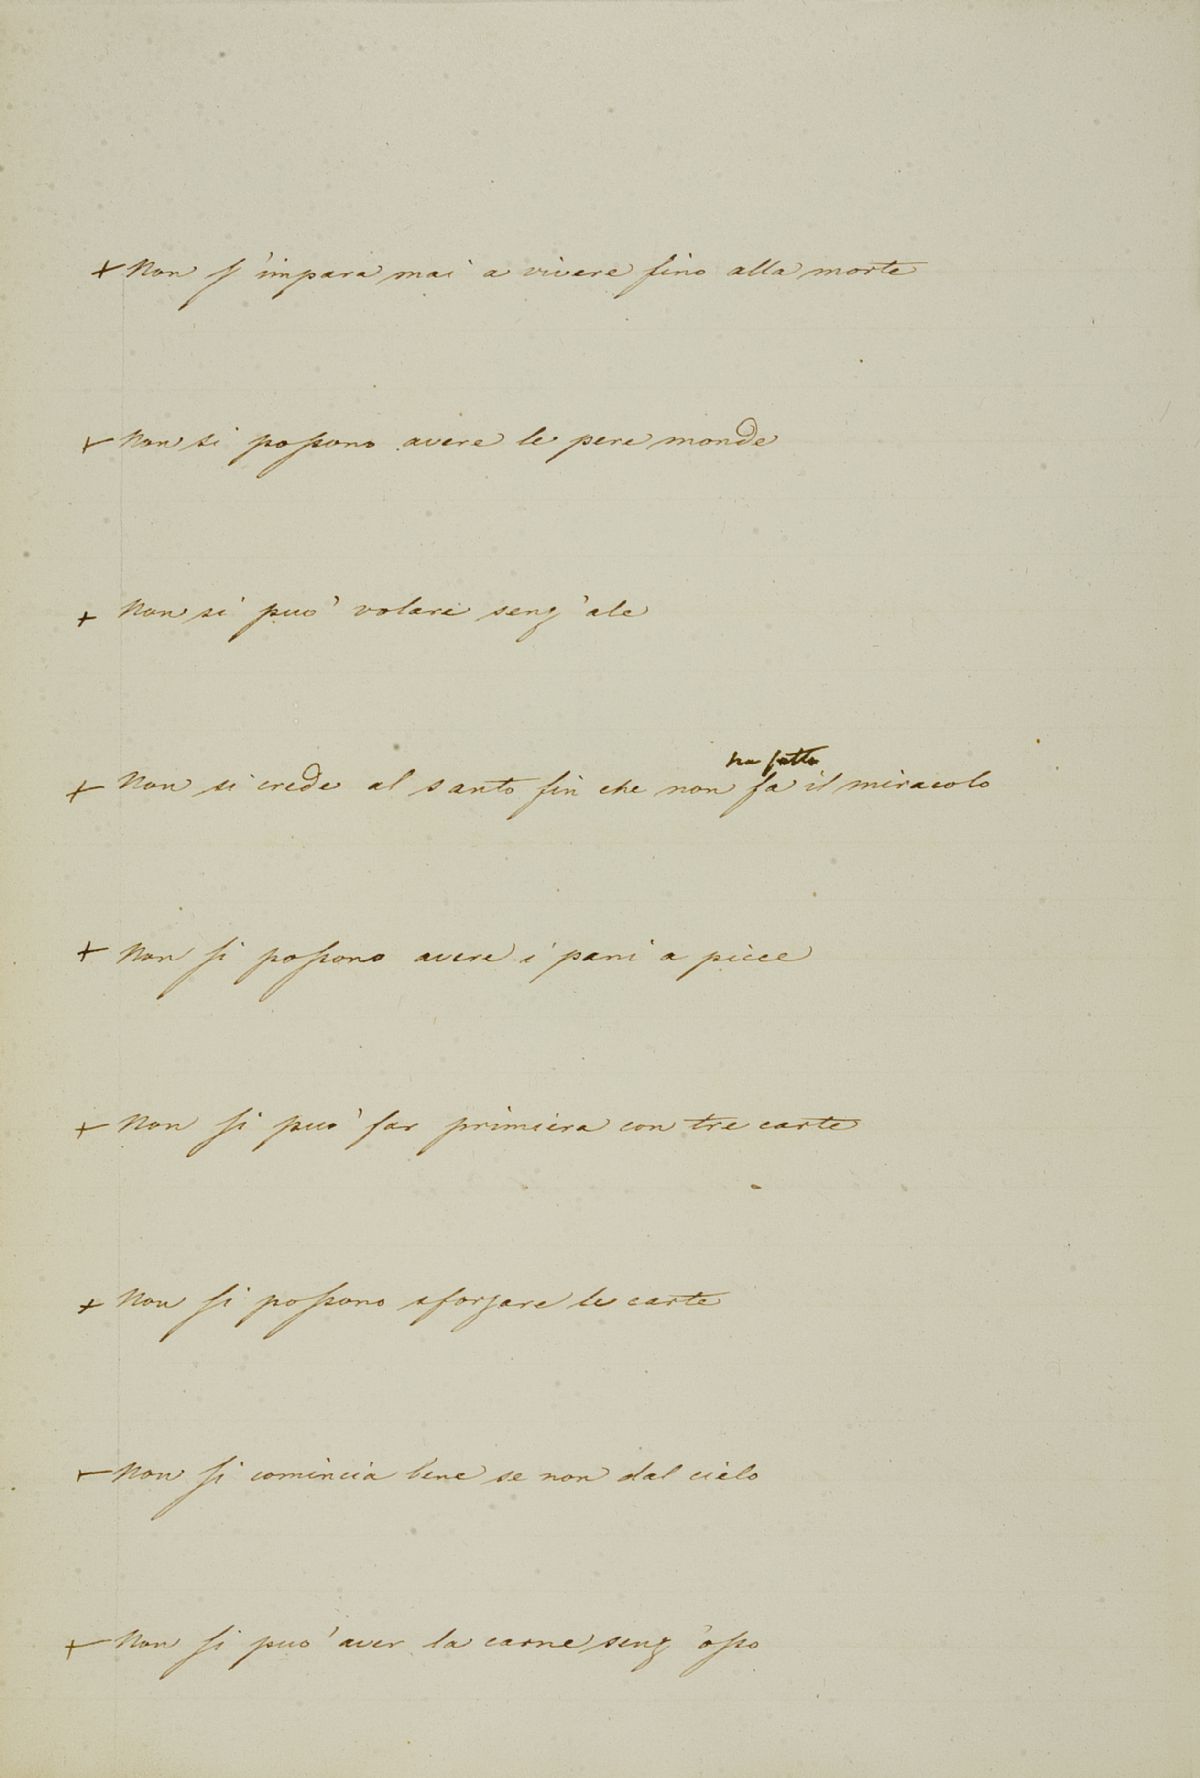 + Non s'impara mai a vivere fino alla morte
+ Non si possono avere le pere monde
+ Non si può volare senz'ale
ha fatto
+ Non si crede al santo fin che non fa il miracolo
+ Non si possono avere i pani a picce
+ Non si può far primiera con tre carte
+ Non si possono sforzare le carte
+ Non si comincia bene se non dal cielo
+ Non si può aver la carne senz'osso